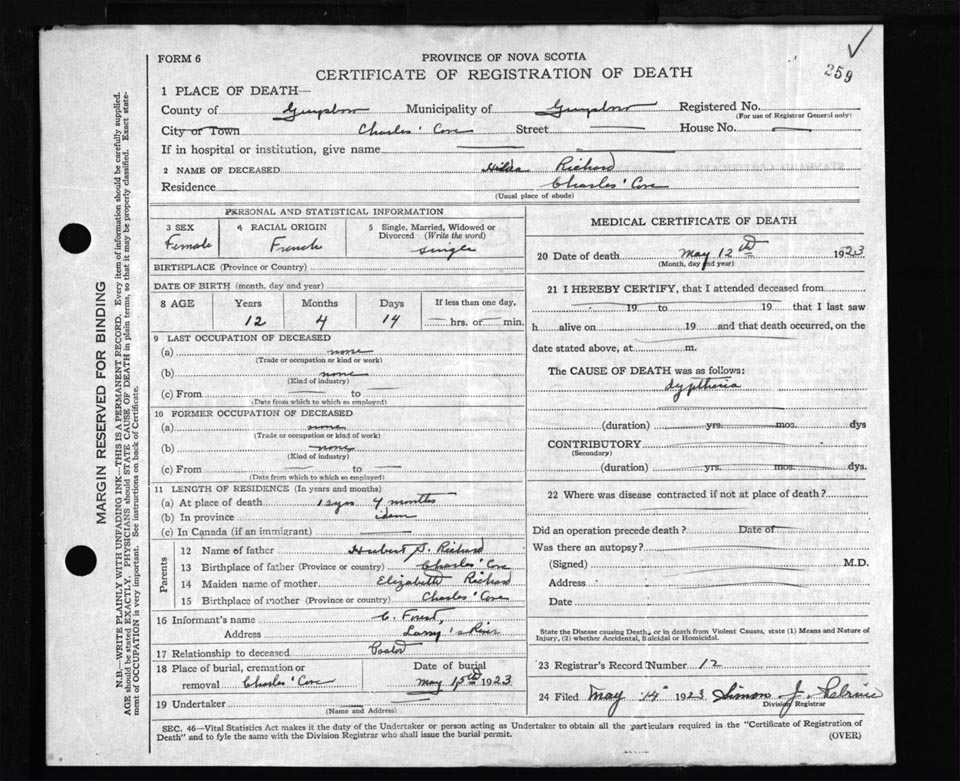 FORM 6
PROVINCE OF NOVA SCOTIA
259
CERTIFICATE OF REGISTRATION OF DEATH
1 PLACE OF DEATH—
County of Guysboro Municipality of Guysboro Registered No.
(For use of Registrar General only)
City or Town Charles' Cove Street House No.
If in hospital or institution, give name
2 NAME OF DECEASED Hilda Richard
Residence Charles' Cove
(Usual place of abode)
PERSONAL AND STATISTICAL INFORMATION
3 SEX 4 RACIAL ORIGIN 5 Single, Married, Widowed or Divorced (Write the word)
Female French single
BIRTHPLACE (Province or Country)
DATE OF BIRTH (month, day and year)
8 AGE Years Months Days If less than one day,
12 4 14 hrs. or min.
9 LAST OCCUPATION OF DECEASED
(a) none
(Trade or occupation or kind or work)
(b) none
(Kind of industry)
(c) From to
(Date from which to which so employed)
10 FORMER OCCUPATION OF DECEASED
(a) none
(Trade or occupation or kind of work)
(b) none
(Kind of industry)
(c) From to
(Date from which to which so employed)
11 LENGTH OF RESIDENCE (In years and months)
(a) At place of death 12 yrs 4 months
(b) In province idem
(c) In Canada (if an immigrant)
Parents
12 Name of father Hubert S. Richard
13 Birthplace of father (Province or country) Charles' Cove
14 Maiden name of mother Elizabeth Richard
15 Birthplace of mother (Province or country) Charles' Cove
16 Informant's name C. Forest,
Address Larry's River
17 Relationship to deceased Pastor
18 Place of burial, cremation or Date of burial
removal Charles' Cove May 15th 1923
19 Undertaker
(Name and Address)
MEDICAL CERTIFICATE OF DEATH
20 Date of death May 12th 1923
(Month, day and year)
21 I HEREBY CERTIFY, that I attended deceased from
19 to 19 that I last saw
h alive on 19 and that death occurred, on the
date stated above, at m.
The CAUSE OF DEATH was as follows:
dyptheria
(duration) yrs. mos. dys
CONTRIBUTORY
(Secondary)
(duration) yrs. mos. dys.
22 Where was disease contracted if not at place of death?
Did an operation precede death? Date of
Was there an autopsy?
(Signed) M.D.
Address
Date
State the Disease causing Death, or in death from Violent Causes, state (1) Means and Nature of
Injury, (2) whether Accidental, Suicidal or Homicidal.
23 Registrar's Record Number 12
24 Filed May 14" 1923 Simon J.
Division Registrar
SEC. 46—Vital Statistics Act makes it the duty of the Undertaker or person acting as Undertaker to obtain all the particulars required in the "Certificate of Registration of
Death" and to fyle the same with the Division Registrar who shall issue the burial permit.
(OVER)
MARGIN RESERVED FOR BINDING
N.B.—WRITE PLAINLY WITH UNFADING INK—THIS IS A PERMANENT RECORD. Every item of information should be carefully supplied.
AGE should be stated EXACTLY. PHYSICIANS should STATE CAUSE OF DEATH in plain terms, so that it may be properly classified. Exact state-
ment of OCCUPATION is very important. See instructions on back of Certificate.